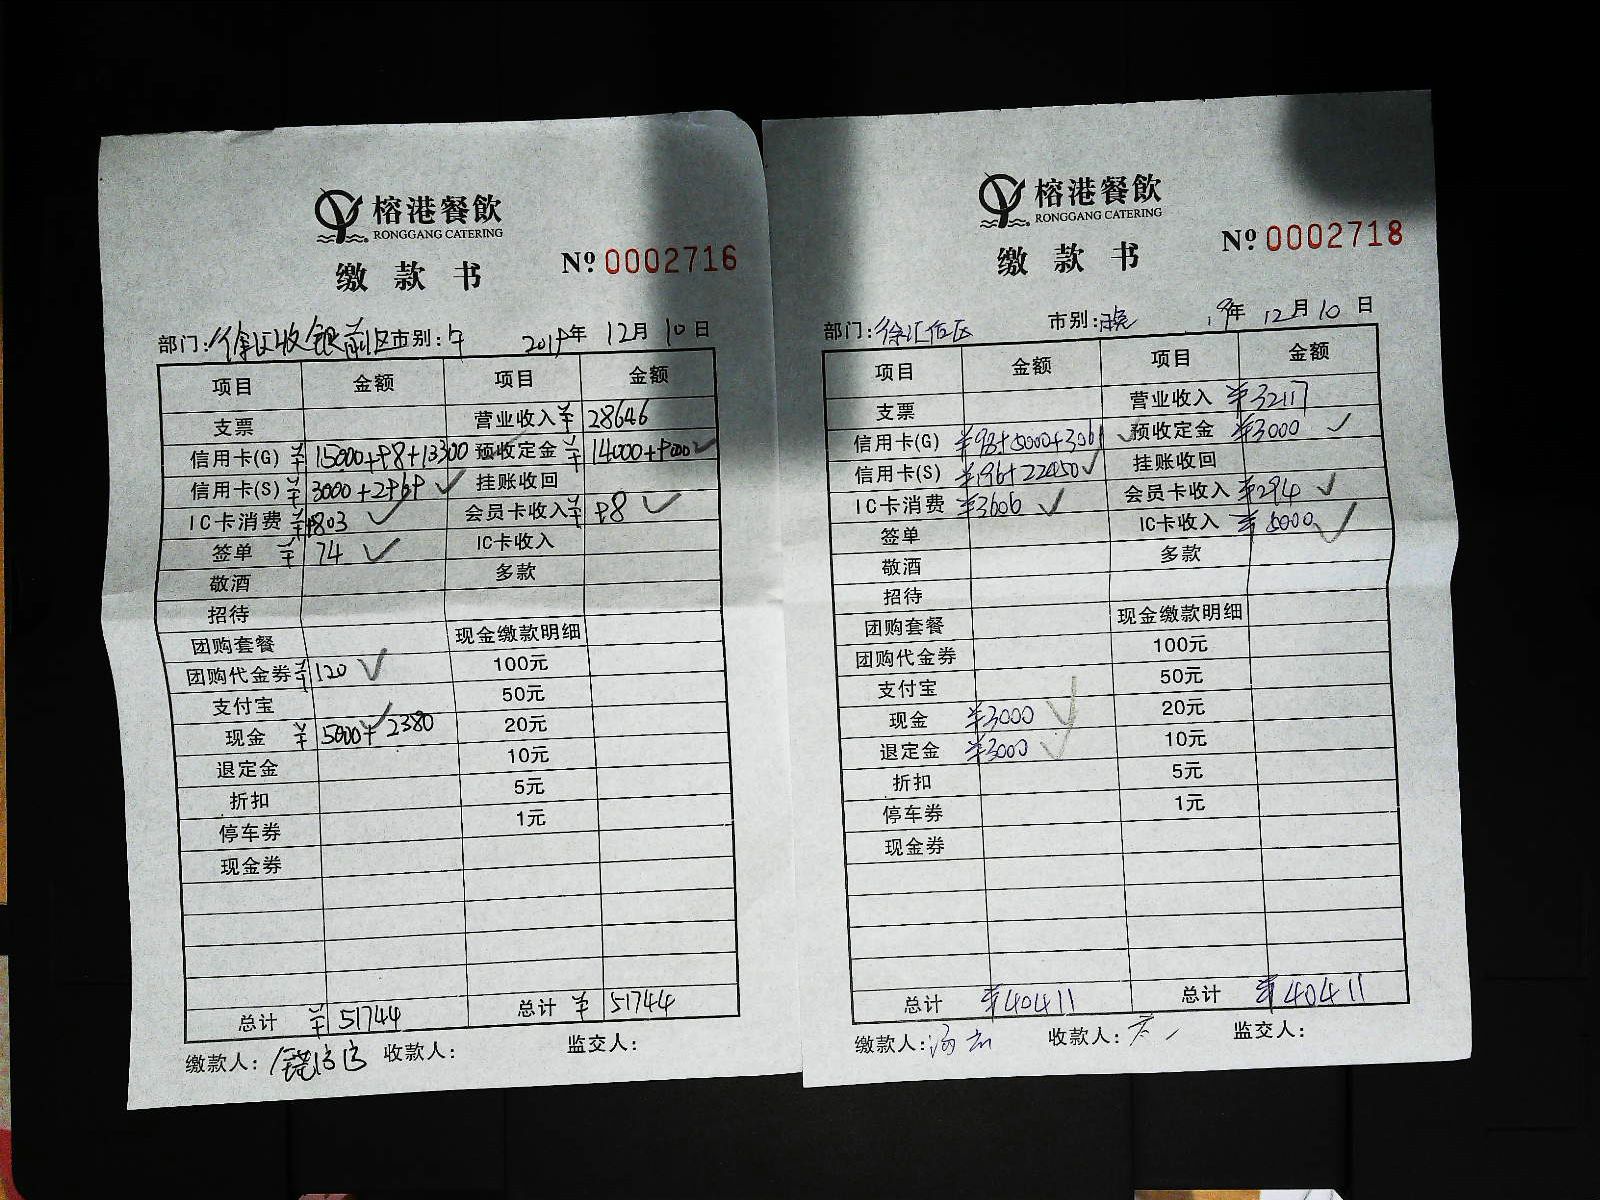 榕港餐飲
RONGGANG CATERING
缴款书
№ 0002716
部门: 徐汇收银前区 市别: 午 2019年 12月 10日
项目 金额 项目 金额
支票 营业收入 ¥ 28646
信用卡(G) ¥ 15000+98+13300 预收定金 ¥ 14000+9000
信用卡(S) ¥ 3000+2969 挂账收回
IC卡消费 ¥ 9803 会员卡收入 ¥ 98
签单 ¥ 74 IC卡收入
敬酒 多款
招待
团购套餐 现金缴款明细
团购代金券 ¥ 120 100元
支付宝 50元
现金 ¥ 5000+2380 20元
退定金 10元
折扣 5元
停车券 1元
现金券
总计 ¥ 51744 总计 ¥ 51744
缴款人: 收款人: 监交人:
榕港餐飲
RONGGANG CATERING
缴款书
№ 0002718
部门: 徐汇后区 市别: 晚 19年 12月 10日
项目 金额 项目 金额
支票 营业收入 ¥32117
信用卡(G) ¥98+5000+3061 预收定金 ¥3000
信用卡(S) ¥196+22450 挂账收回
IC卡消费 ¥3606 会员卡收入 ¥294
签单 IC卡收入 ¥5000
敬酒 多款
招待
团购套餐 现金缴款明细
团购代金券 100元
支付宝 50元
现金 ¥3000 20元
退定金 ¥3000 10元
折扣 5元
停车券 1元
现金券
总计 ¥40411 总计 ¥40411
缴款人: 收款人: 监交人: